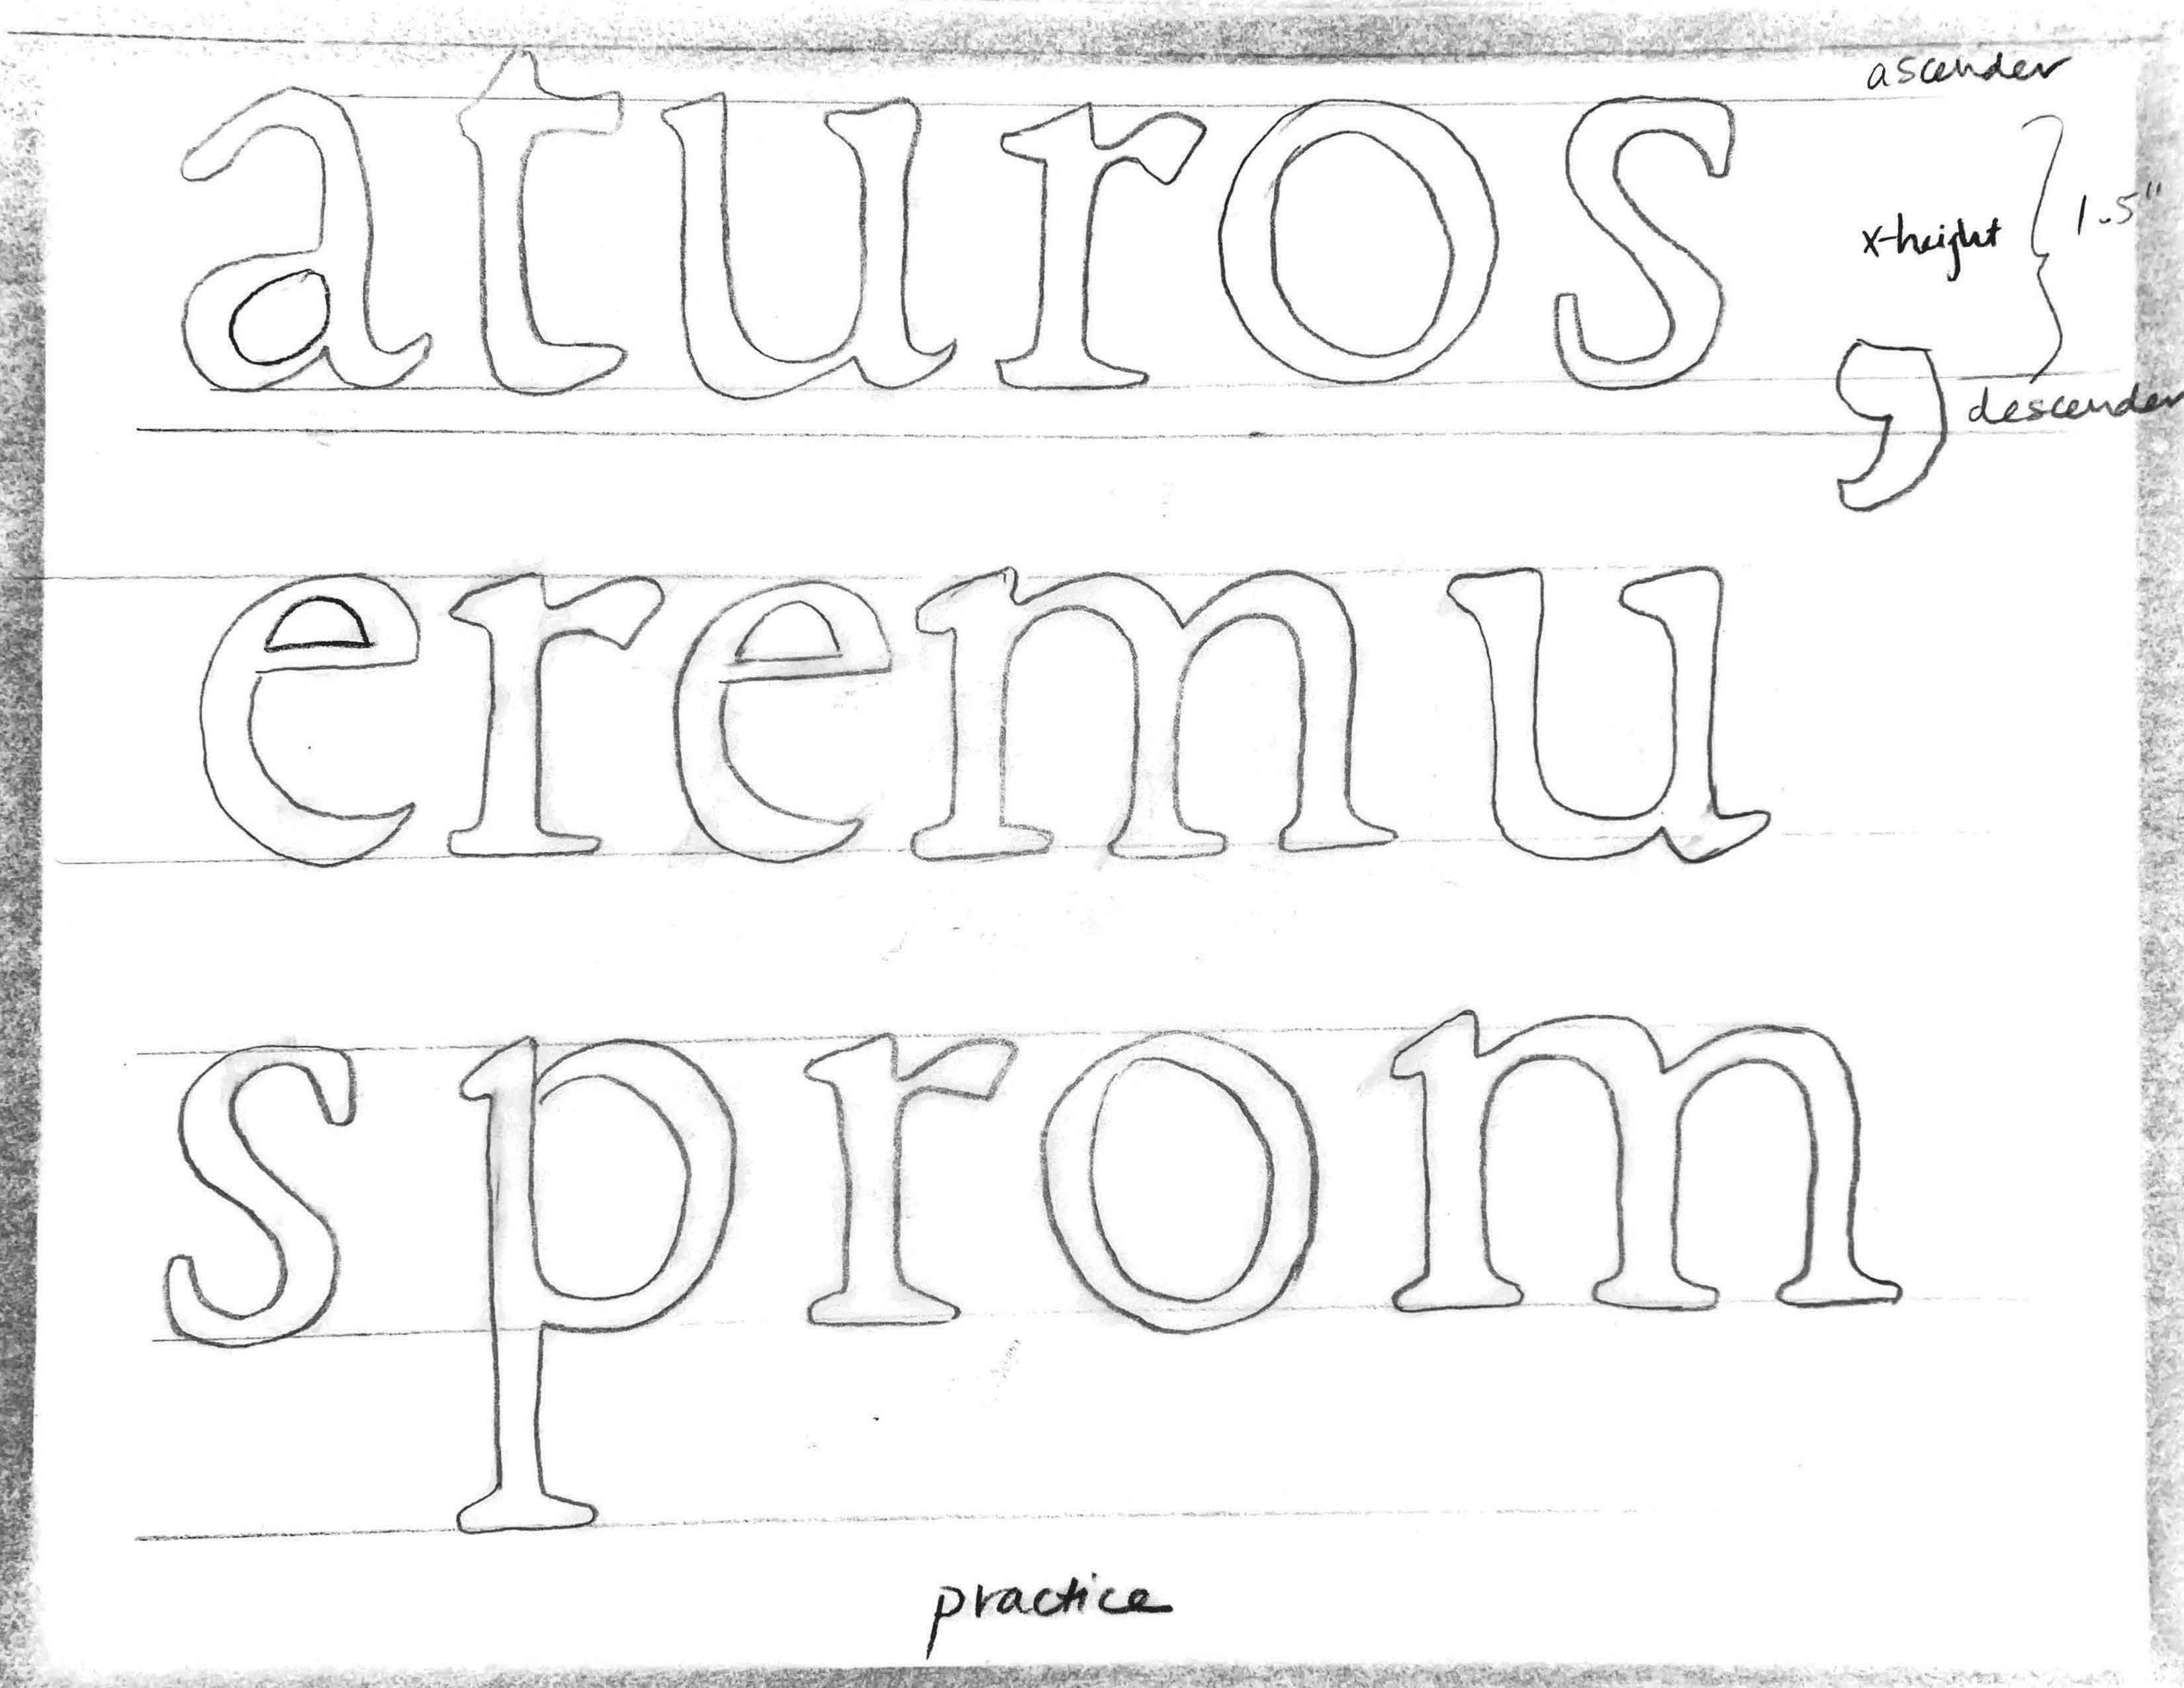 ascender
aturos,
x-height 1.5"
descender
eremu
sprom
practice